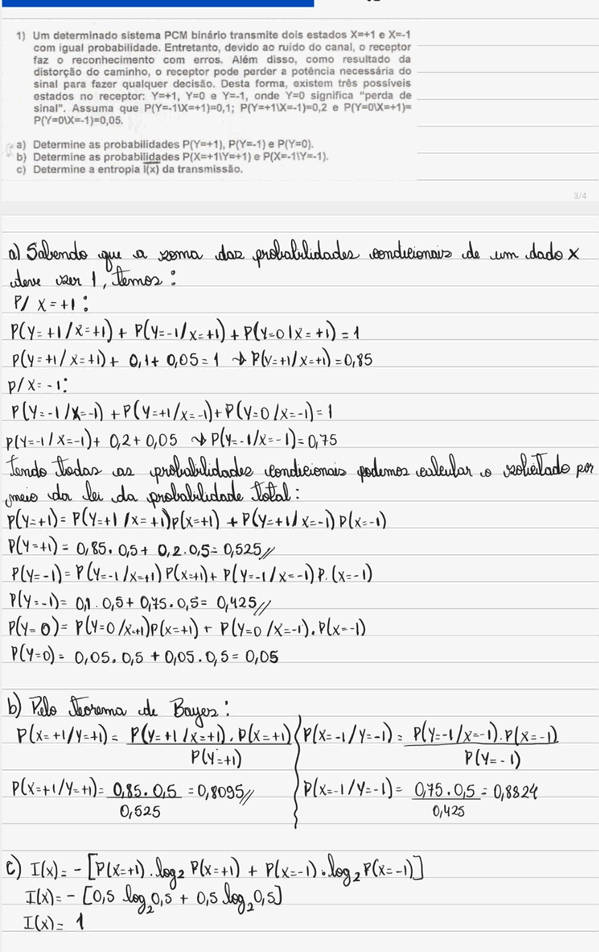 1) Um determinado sistema PCM binário transmite dois estados X=+1 e X=-1
com igual probabilidade. Entretanto, devido ao ruído do canal, o receptor
faz o reconhecimento com erros. Além disso, como resultado da
distorção do caminho, o receptor pode perder a potência necessária do
sinal para fazer qualquer decisão. Desta forma, existem três possíveis
estados no receptor: Y=+1, Y=0 e Y=-1, onde Y=0 significa "perda de
sinal". Assuma que P(Y=-1\X=+1)=0,1; P(Y=+1\X=-1)=0,2 e P(Y=0\X=+1)=
P(Y=0\X=-1)=0,05.
a) Determine as probabilidades P(Y=+1), P(Y=-1) e P(Y=0).
b) Determine as probabilidades P(X=+1\Y=+1) e P(X=-1\Y=-1).
c) Determine a entropia I(x) da transmissão.
3/4
a) Sabendo que a soma das probabilidades condicionais de um dado X
deve ser 1, temos:
P/ X=+1:
P(Y=+1/X=+1) + P(Y=-1/X=+1) + P(Y=0/X=+1) = 1
P(Y=+1/X=+1) + 0,1 + 0,05 = 1 → P(Y=+1/X=+1) = 0,85
P/ X=-1:
P(Y=-1/X=-1) + P(Y=+1/X=-1) + P(Y=0/X=-1) = 1
P(Y=-1/X=-1) + 0,2 + 0,05 → P(Y=-1/X=-1) = 0,75
Tendo todas as probabilidades condicionais podemos calcular o solicitado por
meio da lei da probabilidade total:
P(Y=+1) = P(Y=+1/X=+1)P(X=+1) + P(Y=+1/X=-1) P(X=-1)
P(Y=+1) = 0,85 . 0,5 + 0,2 . 0,5 = 0,525//
P(Y=-1) = P(Y=-1/X=+1) P(X=+1) + P(Y=-1/X=-1) P.(X=-1)
P(Y=-1) = 0,1 . 0,5 + 0,75 . 0,5 = 0,425//
P(Y=0) = P(Y=0/X=+1)P(X=+1) + P(Y=0/X=-1).P(X=-1)
P(Y=0) = 0,05 . 0,5 + 0,05 . 0,5 = 0,05
b) Pelo Teorema de Bayes:
P(X=+1/Y=+1) = P(Y=+1/X=+1) . P(X=+1)
P(Y=+1)
P(X=+1/Y=+1) = 0,85 . 0,5 = 0,8095//
0,525
P(X=-1/Y=-1) = P(Y=-1/X=-1) . P(X=-1)
P(Y=-1)
P(X=-1/Y=-1) = 0,75 . 0,5 = 0,8824
0,425
c) I(x) = - [P(X=+1) . log₂ P(X=+1) + P(X=-1) . log₂ P(X=-1)]
I(x) = - [0,5 log₂ 0,5 + 0,5 log₂ 0,5]
I(x) = 1